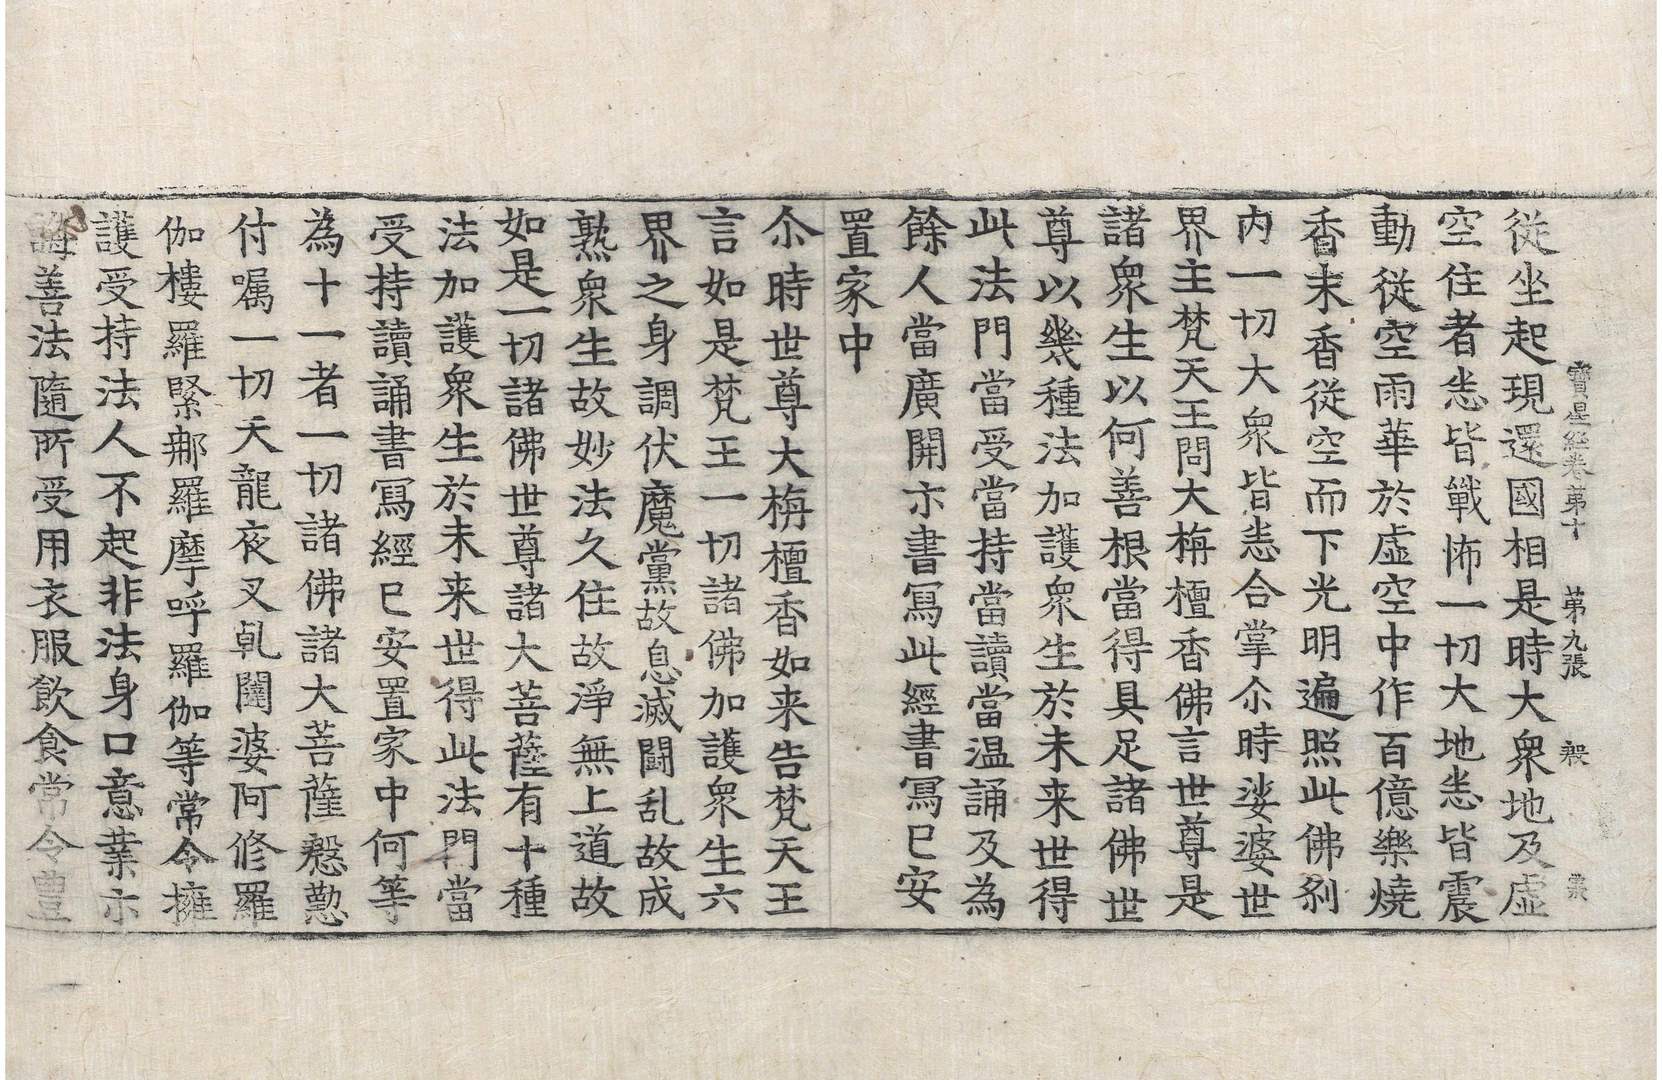 寶星經卷苐十 苐九張 穀
從坐起現還國相是時大衆地及虛
空住者恙皆戰怖一切大地恙皆震
動從空雨華於虛空中作百億樂燒
香末香從空而下光明遍照此佛刹
内一切大衆皆恙合掌尒時娑婆世
界主梵天王問大栴檀香佛言世尊是
諸衆生以何善根當得具足諸佛世
尊以幾種法加護衆生於未来世得
此法門當受當持當讀當温誦及為
餘人當廣開示書寫此經書寫已安
置家中
尒時世尊大栴檀香如来告梵天王
言如是梵王一切諸佛加護衆生六
界之身調伏魔黨故息滅鬪乱故成
熟衆生故妙法久住故淨無上道故
如是一切諸佛世尊諸大菩薩有十種
法加護衆生於未来世得此法門當
受持讀誦書寫經已安置家中何等
為十一者一切諸佛諸大菩薩慇懃
付嘱一切天龍夜叉乹闥婆阿修羅
伽樓羅緊那羅摩呼羅伽等常令擁
護受持法人不起非法身口意業亦
諸善法隨所受用衣服飲食常令豊